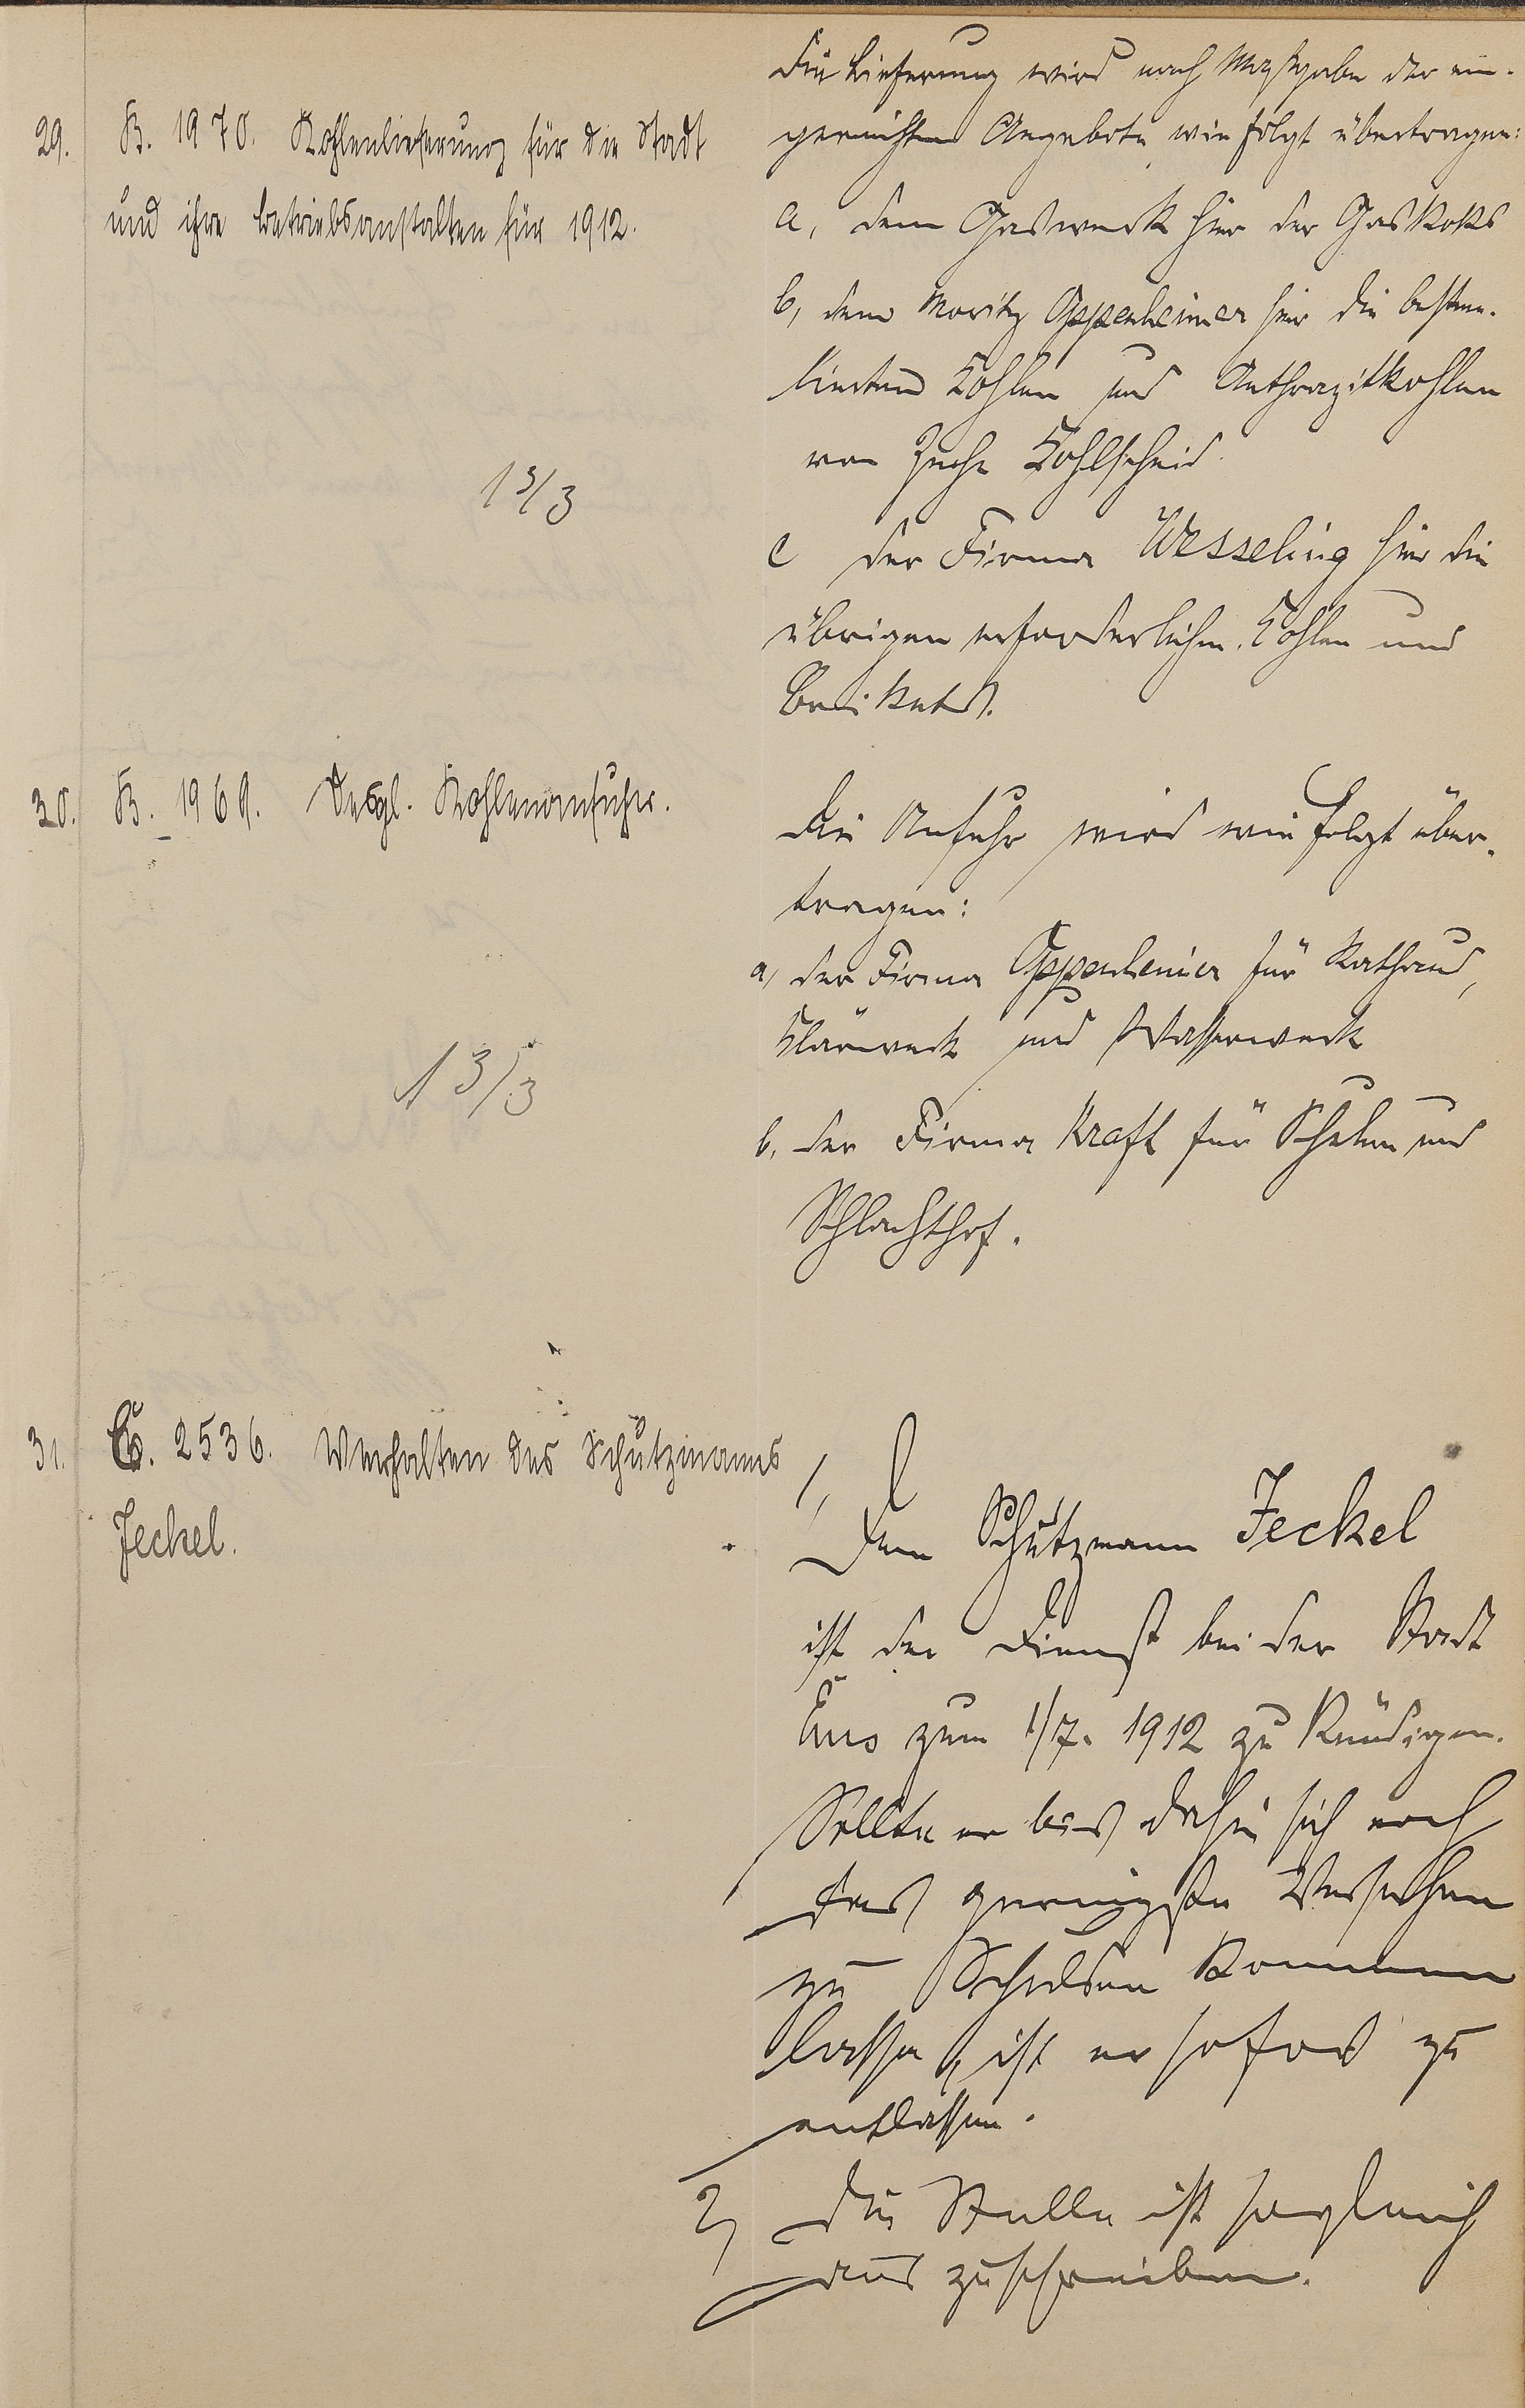 29. B. 1970. Kohlenlieferung für die Stadt
und ihre Betriebsanstalten für 1912.
13/3
Die Lieferung wird nach Maßgabe der ein-
gereichten Angebote wie folgt übertragen:
a, dem Gaswerk hier der Gaskoks
b, dem Moritz Oppenheimer hier die
Kohlen und Anthrazitkohlen
von Zeche Kohlscheid.
c der Firma Wesseling hier die
übrigen erforderlichen Kohlen und
Brikets.
30. B. 1969. Desgl. Kohlenanfuhr.
13/3
Die Anfuhr wird wie folgt über-
tragen:
a, der Firma Oppenheimer für Rathaus,
Klärwerk und Wasserwerk
b, der Firma Kraft für Schulen und
Schlachthof.
31. C. 2536. Verhalten des Schutzmanns
Jeckel.
1, Dem Schutzmann Jeckel
ist der Dienst bei der Stadt
Ems zum 1/7. 1912 zu kündigen.
Sollte er bis dahin sich noch
das geringste Versehen
zu Schulden kommen
lassen, ist er sofort zu
entlassen.
2, Die Stelle ist sogleich
auszuschreiben.